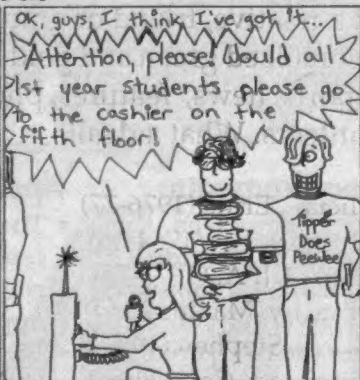 OK, guys, I think I've got it...
Attention, please! Would all
1st year students please go
to the cashier on the
fifth floor!
Tipper
Does
PeeWee